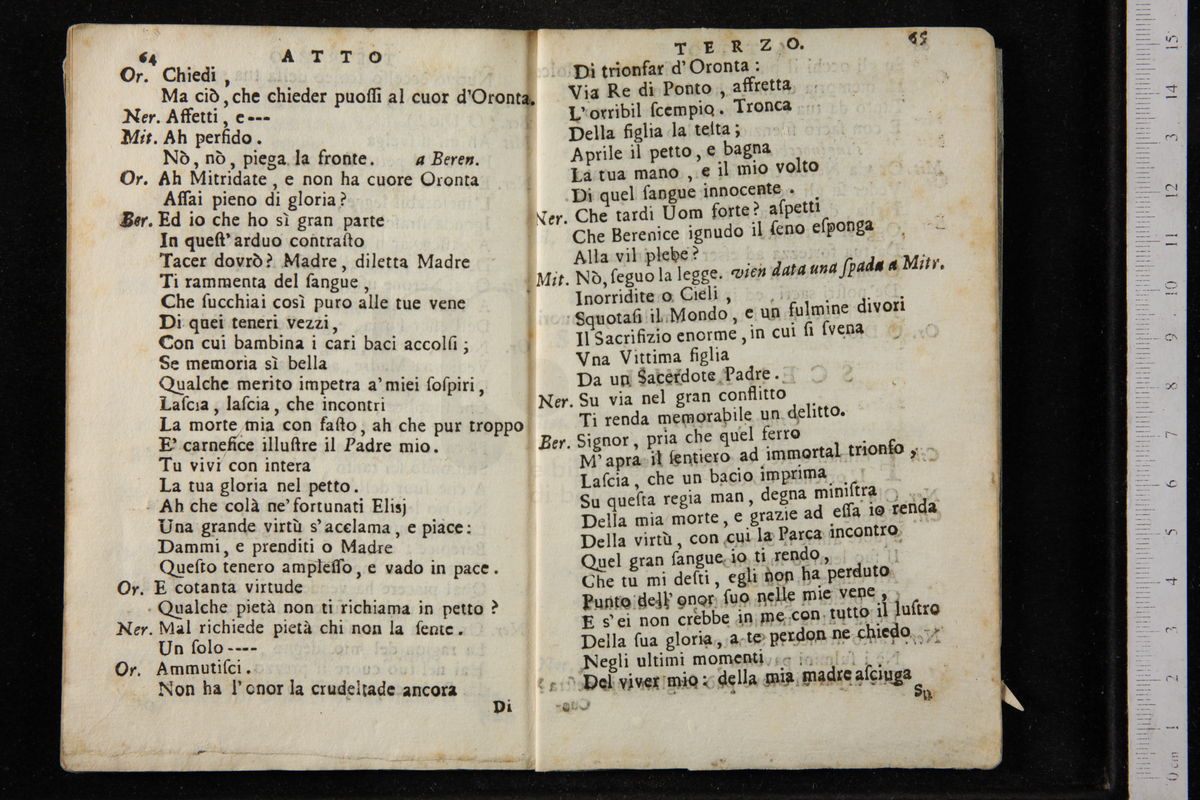 64
ATTO
Or. Chiedi,
Ma ciò, che chieder puoſſi al cuor d'Oronta.
Ner. Affetti, e---
Mit. Ah perfido.
Nò, nò, piega la fronte. a Beren.
Or. Ah Mitridate, e non ha cuore Oronta
Aſſai pieno di gloria?
Ber. Ed io che ho sì gran parte
In queſt'arduo contraſto
Tacer dovrò? Madre, diletta Madre
Ti rammenta del ſangue,
Che ſucchiai così puro alle tue vene
Di quei teneri vezzi,
Con cui bambina i cari baci accolſi;
Se memoria sì bella
Qualche merito impetra a'miei ſoſpiri,
Laſcia, laſcia, che incontri
La morte mia con faſto, ah che pur troppo
E' carnefice illuſtre il Padre mio.
Tu vivi con intera
La tua gloria nel petto.
Ah che colà ne'fortunati Elisj
Una grande virtù s'acclama, e piace:
Dammi, e prenditi o Madre
Queſto tenero ampleſſo, e vado in pace.
Or. E cotanta virtude
Qualche pietà non ti richiama in petto?
Ner. Mal richiede pietà chi non la ſente.
Un ſolo----
Or. Ammutiſci.
Non ha l'onor la crudeltade ancora
Di
TERZO.
65
Di trionfar d'Oronta:
Via Re di Ponto, affretta
L'orribil ſcempio. Tronca
Della figlia la teſta;
Aprile il petto, e bagna
La tua mano, e il mio volto
Di quel ſangue innocente.
Ner. Che tardi Uom forte? aſpetti
Che Berenice ignudo il ſeno eſponga
Alla vil plebe?
Mit. Nò, ſeguo la legge. vien data una ſpada a Mitr.
Inorridite o Cieli,
Squotaſi il Mondo, e un fulmine divori
Il Sacrifizio enorme, in cui ſi ſvena
Vna Vittima figlia
Da un Sacerdote Padre.
Ner. Su via nel gran conflitto
Ti renda memorabile un delitto.
Ber. Signor, pria che quel ferro
M'apra il ſentiero ad immortal trionfo,
Laſcia, che un bacio imprima
Su queſta regia man, degna miniſtra
Della mia morte, e grazie ad eſſa io renda
Della virtù, con cui la Parca incontro
Quel gran ſangue io ti rendo,
Che tu mi deſti, egli non ha perduto
Punto dell'onor ſuo nelle mie vene,
E s'ei non crebbe in me con tutto il luſtro
Della ſua gloria, a te perdon ne chiedo
Negli ultimi momenti
Del viver mio: della mia madre aſciuga
Su
0 cm 1 2 3 4 5 6 7 8 9 10 11 12 13 14 15